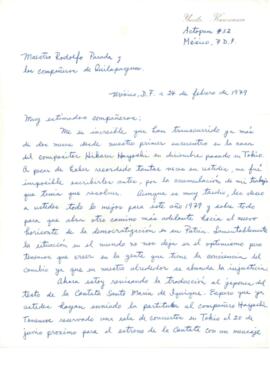 Actopan #52
México, 7 D.F.
Maestro Rodolfo Parada y
los compañeros de Quilapayun
México, D.F. a 24 de febrero de 1979
Muy estimados compañeros:
Me es increíble que han transcurrido ya más
de dos meses desde nuestro primer encuentro en la casa
del compositor Hikaru Hayashi en diciembre pasado en Tokio.
A pesar de haber recordado tantas veces en ustedes, me fué
imposible escribirles antes, por la acumulación de mi trabajo
que tenía que resolver. Aunque es muy tarde, les deseo
a ustedes todo lo mejor para este año 1979 y sobre todo
para que abra otro camino más adelante hacia el nuevo
horizonte de la democratización en su Patria. Lamentablemente
la situación en el mundo no nos deja en el optimismo pero
tenemos que creer en la gente que tiene la conciencia del
cambio ya que en nuestro alrededor se abunda la injusticia.
Ahora estoy revisando la traducción al japonés del
texto de la Cantata Santa María de Iquique. Espero que ya
ustedes hayan enviado la partitura al compañero Hayashi.
Tenemos reservado una sala de concierto en Tokio el 20 de
junio próximo para el estreno de la Cantata con un mensaje